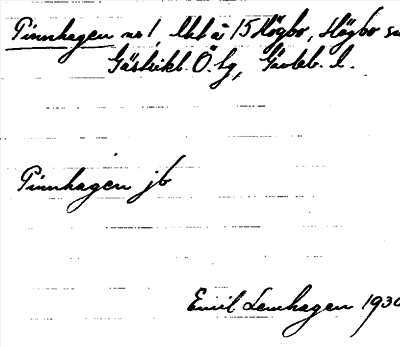 Pinnhagen no 1, Mkt ä 15 Högbo, Högbo
Gästrikl. Ö. tg, Gävleb. l.
Pinnhagen jb
Emil Lemhagen 193